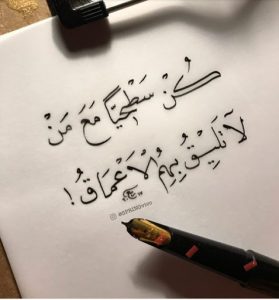 كُنْ سَطْحِيًّا مَعَ مَنْ
لَا تَلِيْقُ بِهِمُ الْأَعْمَاقُ !